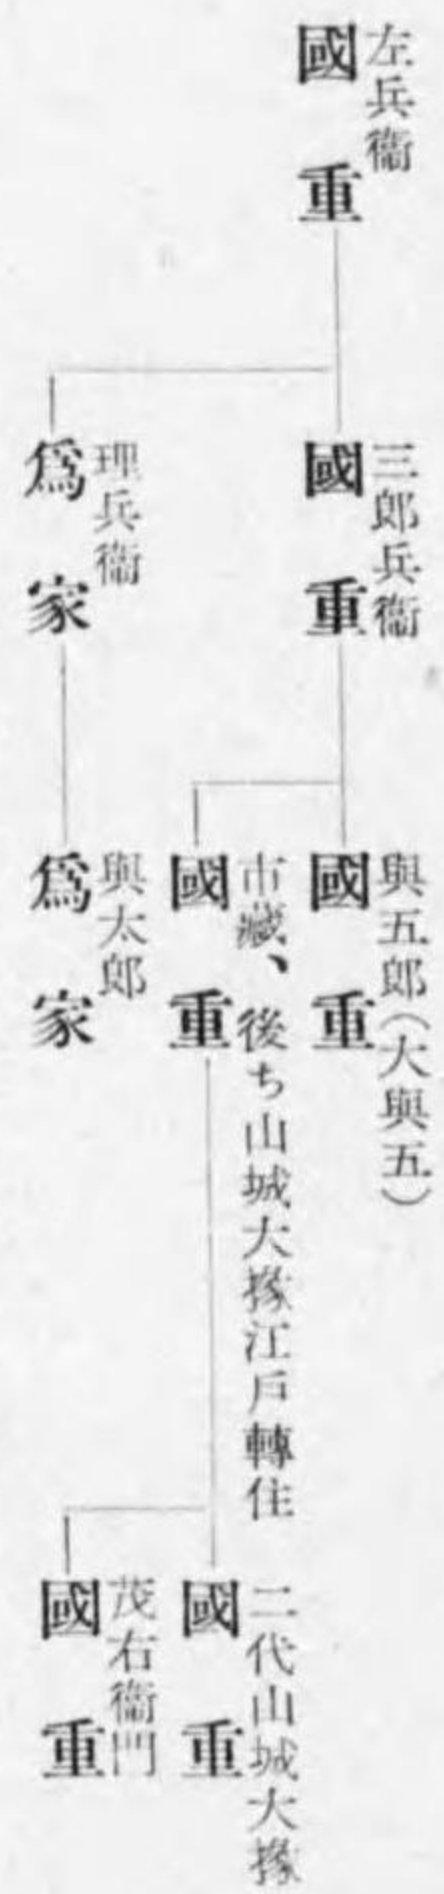 左兵衞
國重
三郎兵衞
國重
理兵衞
爲家
與五郎(大與五)
國重
市藏、後ち山城大掾江戶轉住
國重
與太郎
爲家
二代山城大掾
國重
茂右衞門
國重